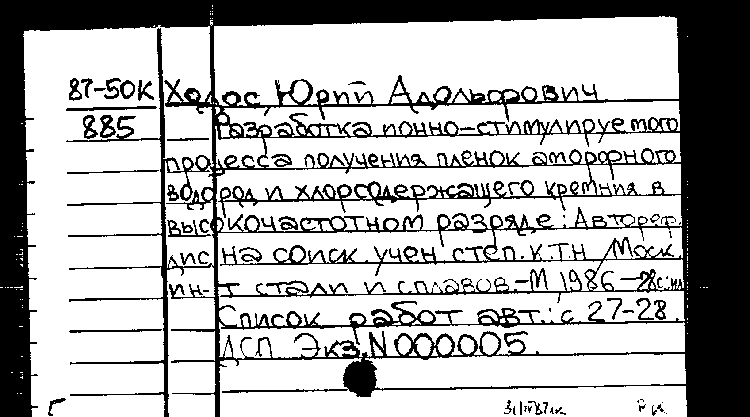 87-50К Ходос, Юрий Адольфович
885 Разработка ионно-стимулируемого
процесса получения пленок аморфного
водород и хлорсодержащего кремния в
высокочастотном разряде: Автореф.
дис. на соиск. учен. степ. к.т.н / Моск.
ин-т стали и сплавов.-М, 1986 -28с.: ил
Список работ авт.: с 27-28.
ДСП Экз. N000005.